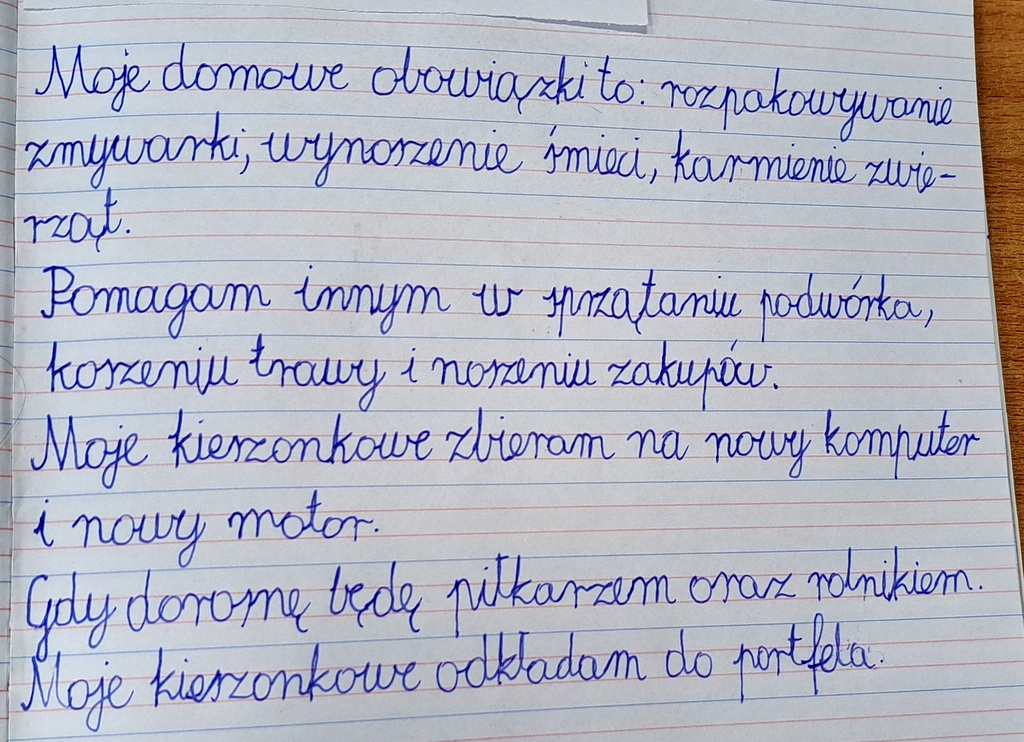 Moje domowe obowiązki to: rozpakowywanie
zmywarki, wynoszenie śmieci, karmienie zwie-
rząt.
Pomagam innym w sprzątaniu podwórka,
koszeniu trawy i noszeniu zakupów.
Moje kieszonkowe zbieram na nowy komputer
i nowy motor.
Gdy dorosnę będę piłkarzem oraz rolnikiem.
Moje kieszonkowe odkładam do portfela.